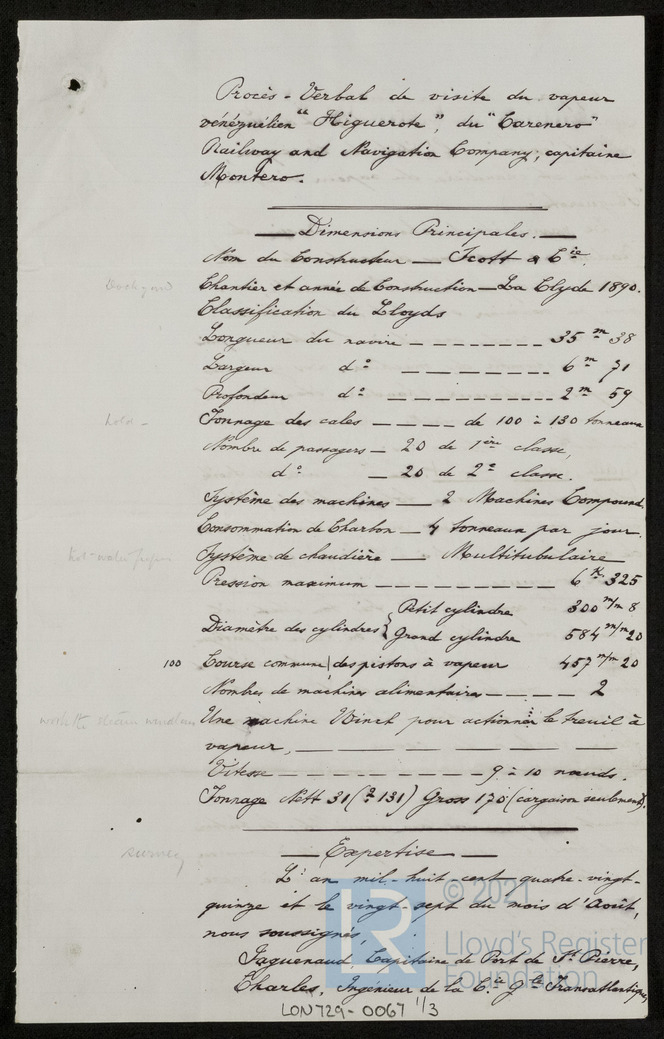 Procès-Verbal de visite du vapeur
vénézuélien "Higuerote", du "Carenero"
Railway and Navigation Company; capitaine
Montero.
Dimensions Principales.
Nom du Constructeur — Scott & Cie.
Dockyard
Chantier et année de Construction — La Clyde 1890.
Classification du Lloyds
Longueur du navire — 35 m 38
Largeur do — 6 m 71
Profondeur do — 2 m 59
holds -
Tonnage des cales — de 100 à 130 tonneaux
Nombre de passagers — 20 de 1ère classe,
do — 20 de 2e classe.
Système des machines — 2 Machines Compound.
Consommation de Charbon — 4 tonneaux par jour.
hot-water
Système de chaudière — Multitubulaire
Pression maximum — 6 K 325
Diamètre des cylindres { Petit cylindre 300 m/m 8
Grand cylindre 584 m/m 20
100
Course commune des pistons à vapeur 457 m/m 20
Nombres de machines alimentaires — 2
work the steam windlass
Une machine Winch pour actionner le treuil à
vapeur, —
Vitesse — 9 à 10 nœuds.
Tonnage Nett 31 (? 131) Gross 170 (cargaison seulement).
Expertise
survey
L'an mil-huit-cent quatre-vingt-
quinze et le vingt-sept du mois d'Août,
nous soussignés,
Jaguenaud, Capitaine de Port de St Pierre,
Charles, Ingénieur de la Cie Gle Transatlantique,
LON729-0067 1/3
© 2021
LR
Lloyd's Register
Foundation